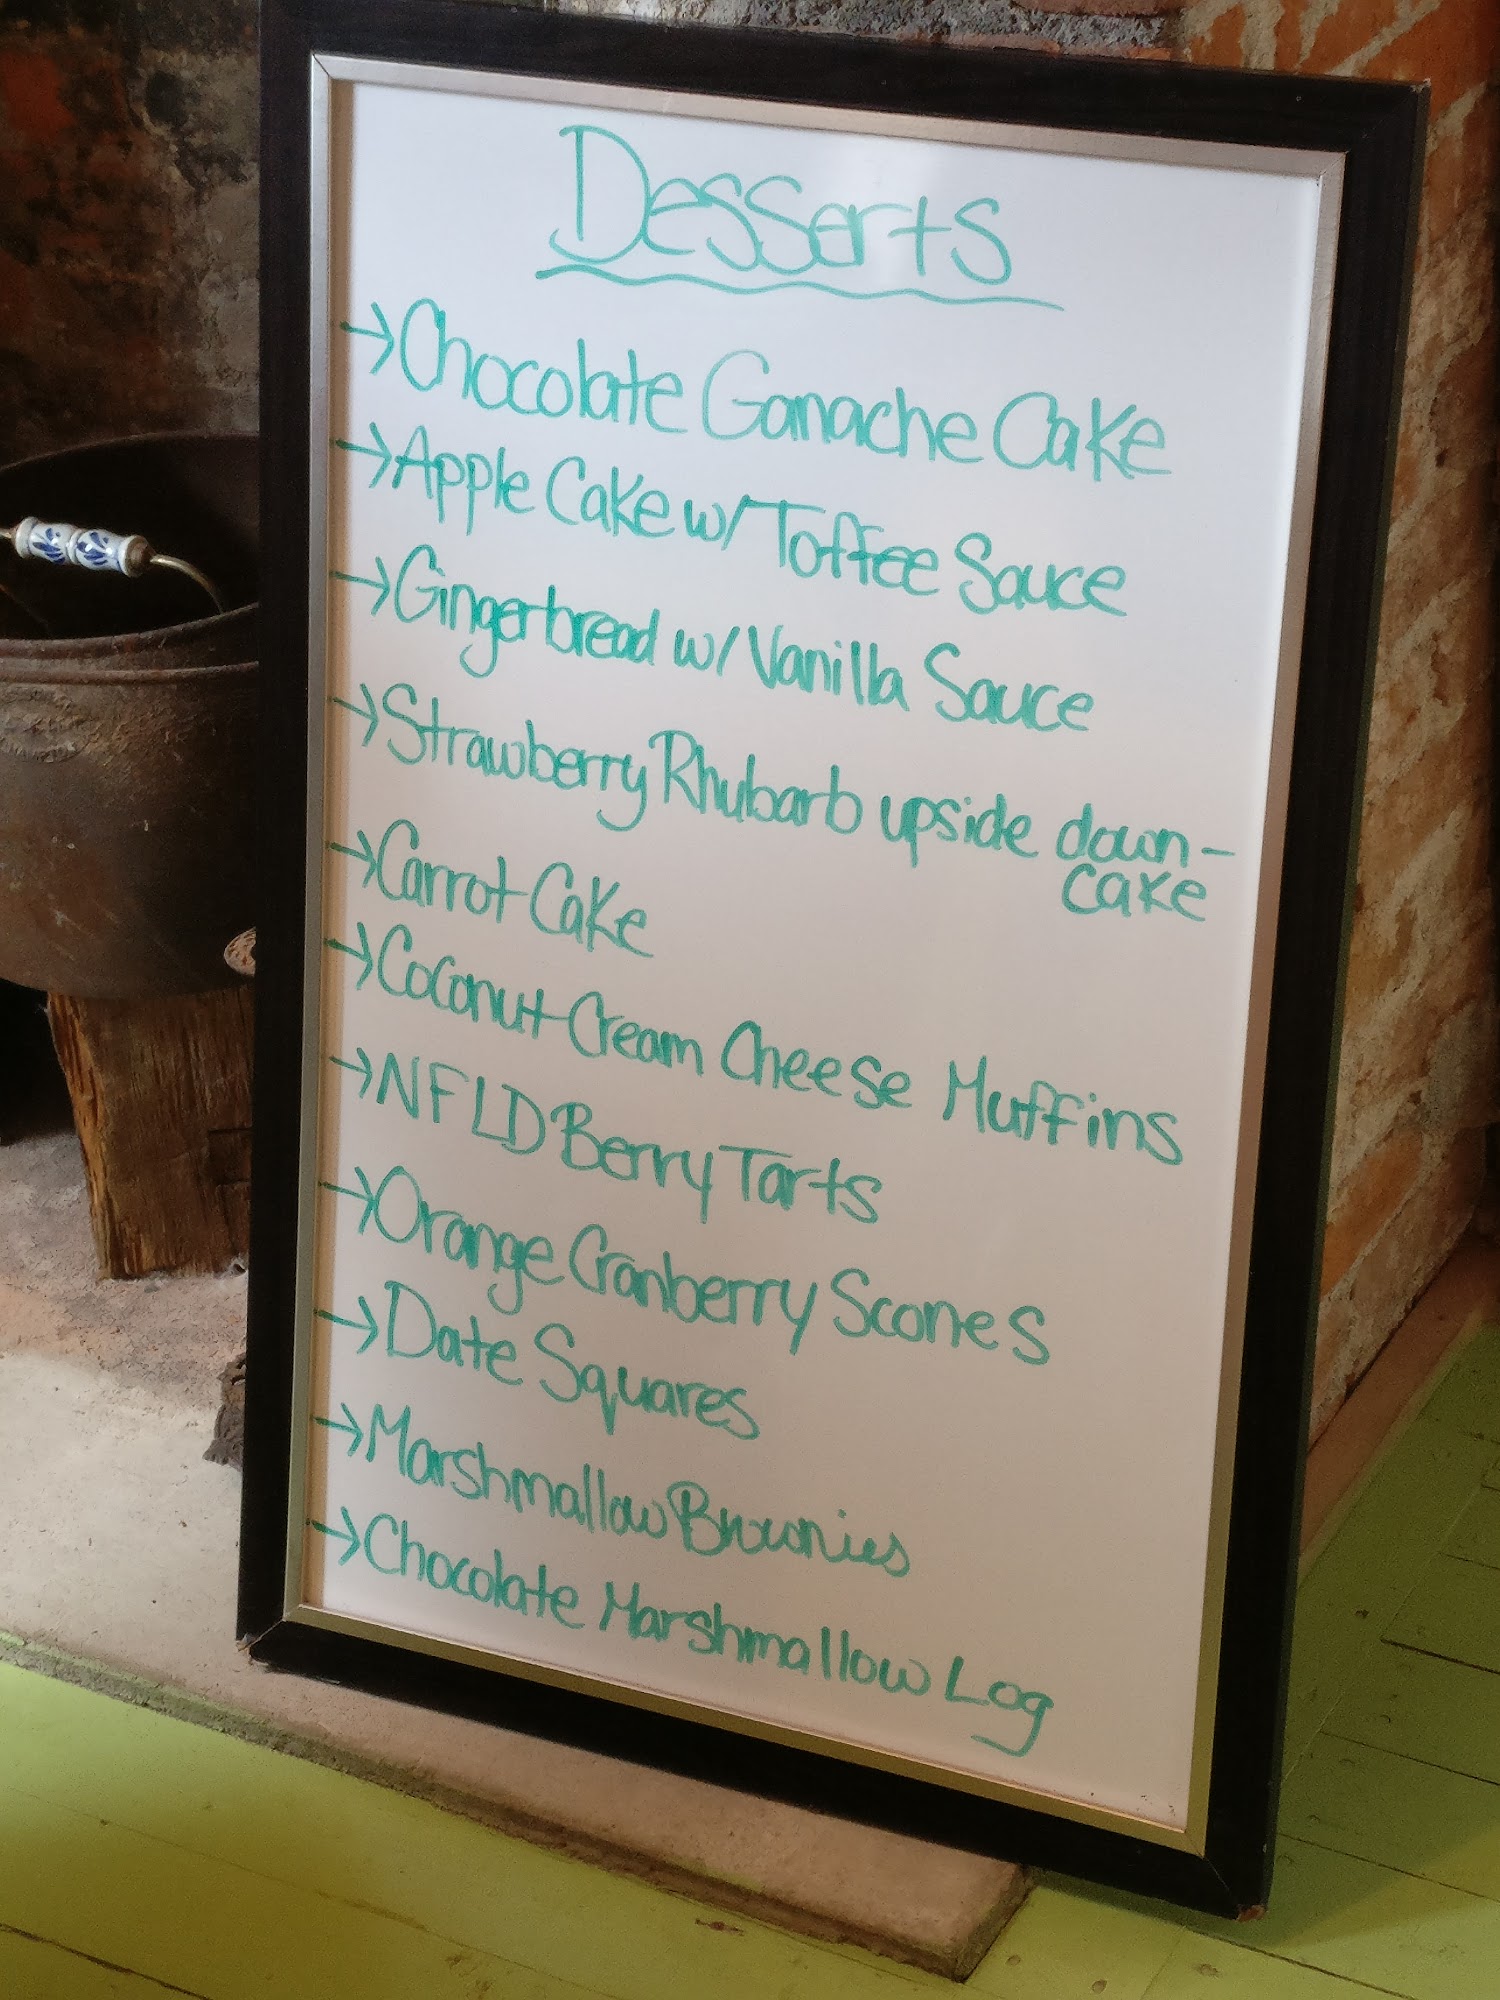 Desserts
→Chocolate Ganache Cake
→Apple Cake w/ Toffee Sauce
→Gingerbread w/ Vanilla Sauce
→Strawberry Rhubarb upside down-
cake
→Carrot Cake
→Coconut Cream Cheese Muffins
→NFLD Berry Tarts
→Orange Cranberry Scones
→Date Squares
→Marshmallow Brownies
→Chocolate Marshmallow Log